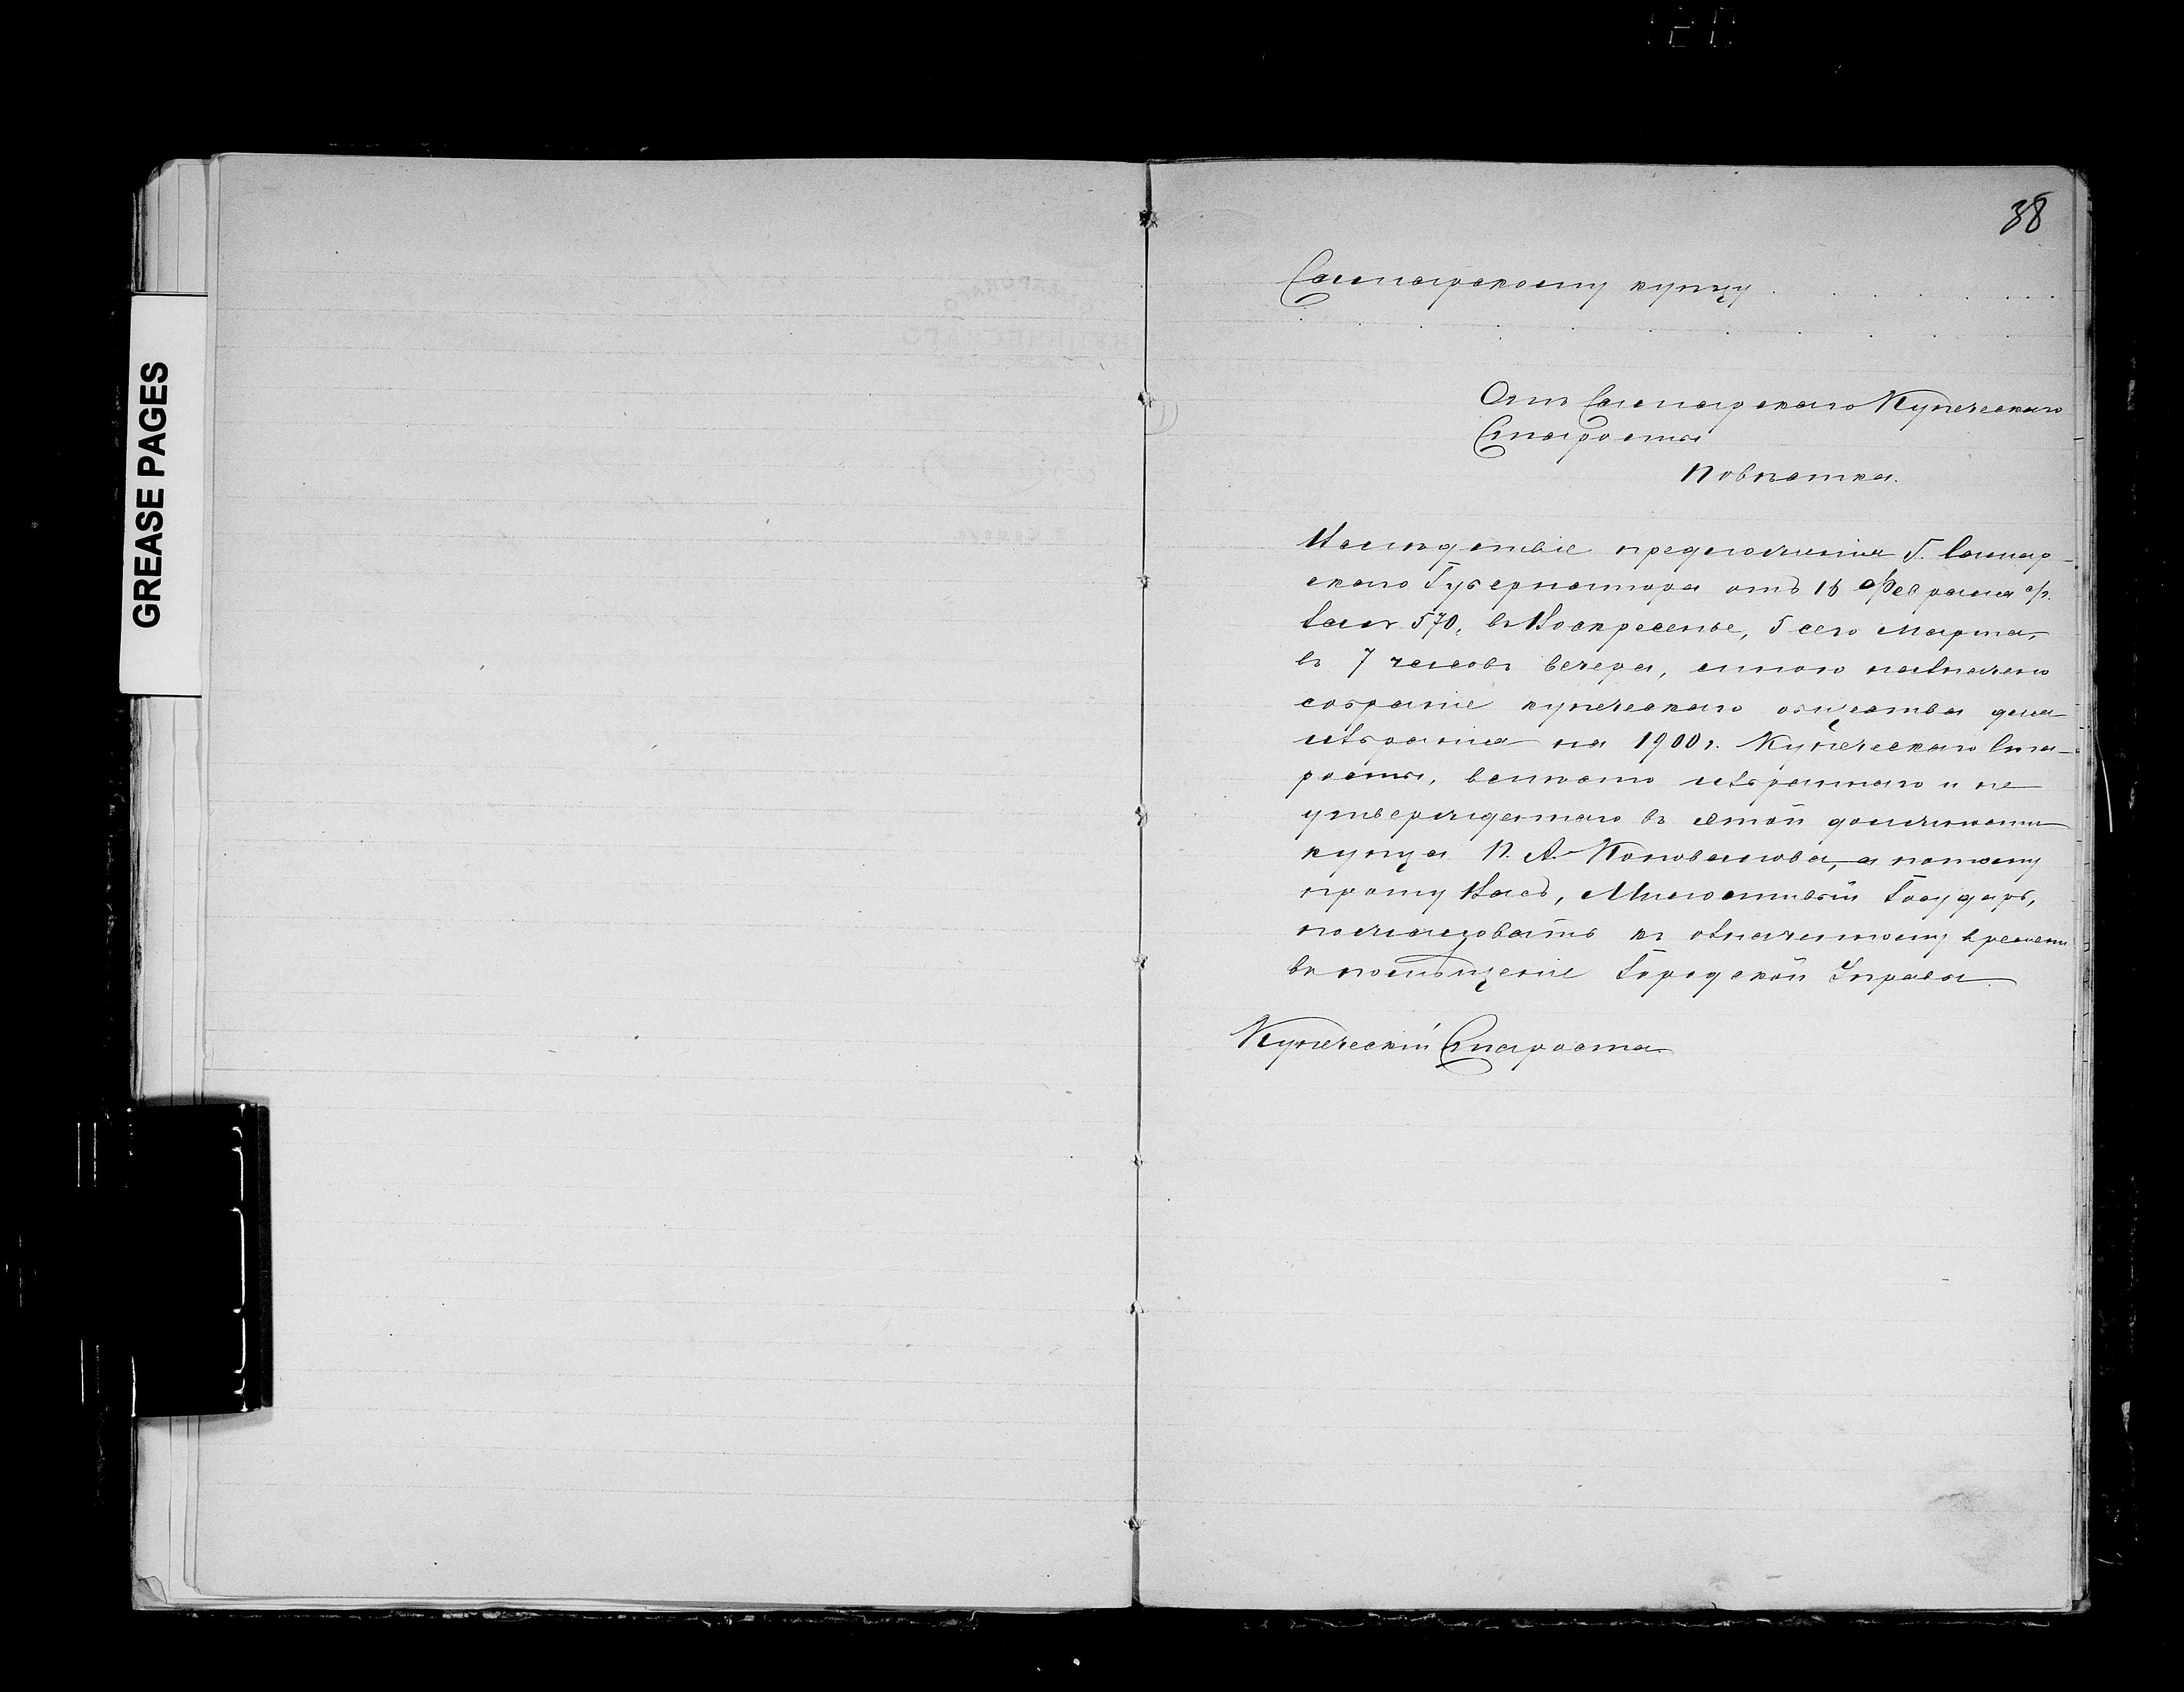 38
Самарскому купцу . . . . . . . .
. . . . . . . . . .
Отъ Самарскаго Купеческаго
Старосты
Повѣстка.
Вслѣдствіе предложенія Г. Самар-
скаго Губернатора отъ 16 Февраля с/г.
за № 570, въ Воскресенье, 5 сего Марта,
въ 7 часовъ вечера, мною назначено
собраніе купеческаго общества для
избранія на 1900 г. Купеческаго Ста-
росты, вмѣсто избраннаго и не
утвержденнаго въ этой должности
купца П. А. Коновалова, а потому
прошу Васъ, Милостивый Государь,
пожаловать къ означенному времени
въ помѣщеніе Городской Управы.
Купеческій Староста
GREASE PAGES